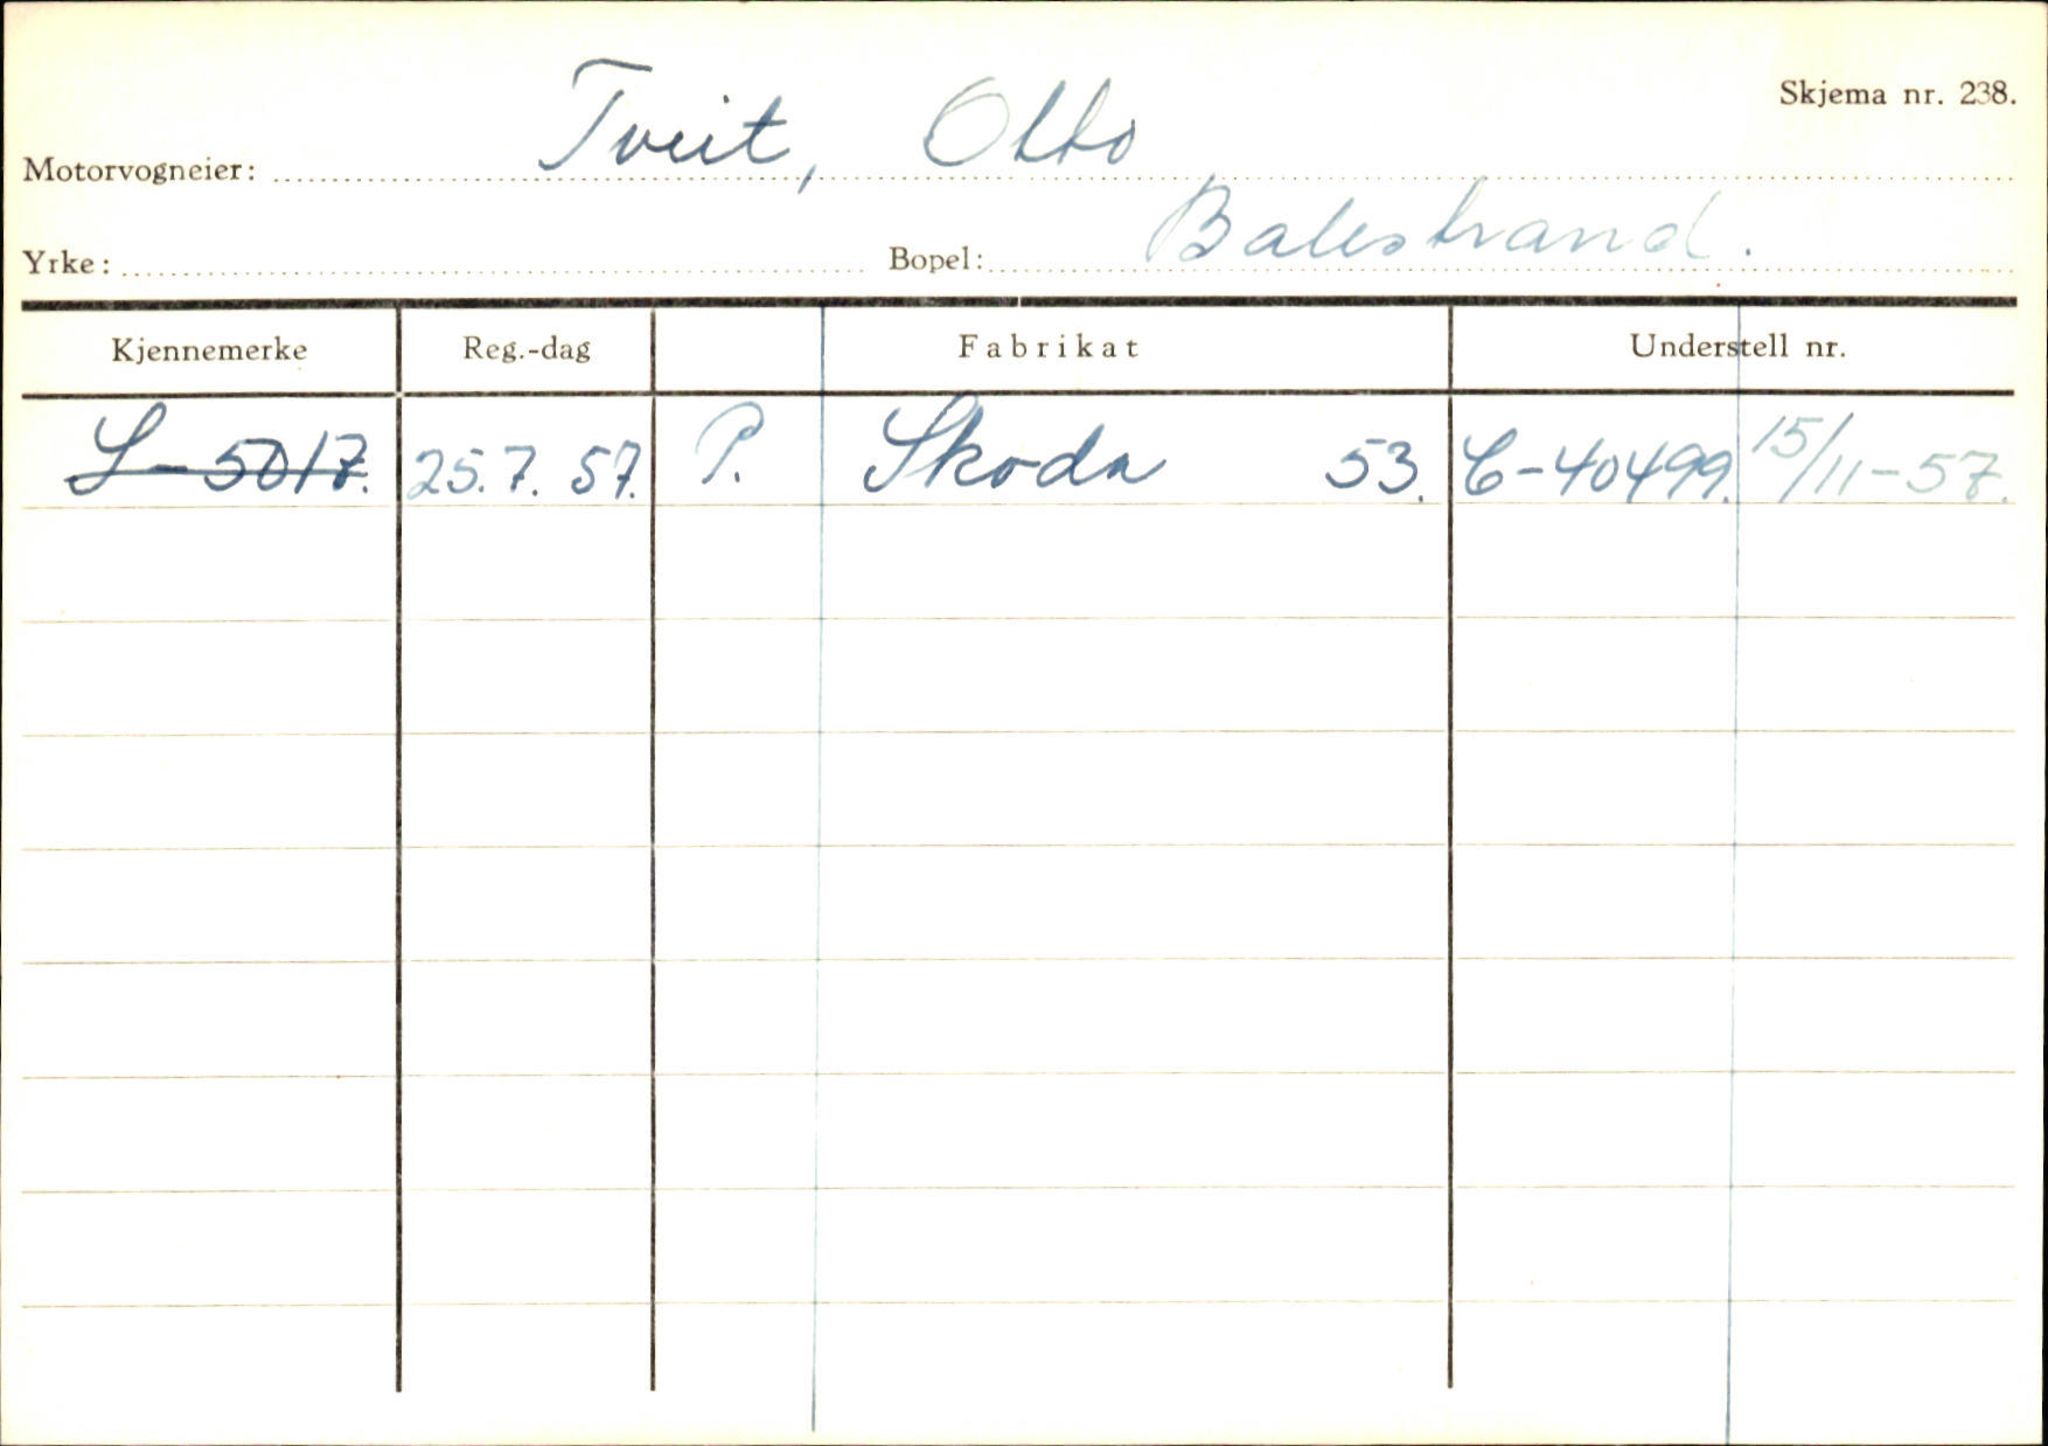 Skjema nr. 238.
Motorvogneier: Tveit, Otto
Yrke: Bopel: Balestrand.
Kjennemerke Reg.-dag Fabrikat Understell nr.
S-5017. 25.7.57. P. Skoda 53. C-40499. 15/11-57.